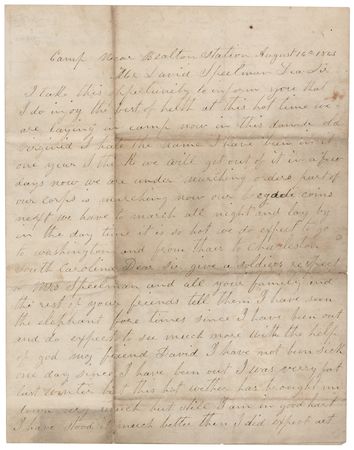 Camp Near Bealton Station August 16th 1863
Mr David Speelman Dea Sir
I take this oppertunity to inform you that
I do injoy the best of helth at this hot time we
are laying in camp now in this damde old
virginea I hate the name I have been in it
one year I think we will get out of it in a few
days now we are under marching orders part of
our corps is marching now our brcgade coms
next we have to march all night and lay by
in the day time it is so hot we do expect to go
to washington and from thair to Charleston
South Carolina Dear Sir give a soldiers respect
to Mrs Speelman and all your family and
the rest of your friends tell them I have seen
the elephant fore times since I have bin out
and do expect to see much more with the help
of god my friend David I have not bin sick
one day since I have bin out I was very fat
last winter but this hot wether has brought me
down very much but still I am in good hart
I have stood it much better then I did expect at